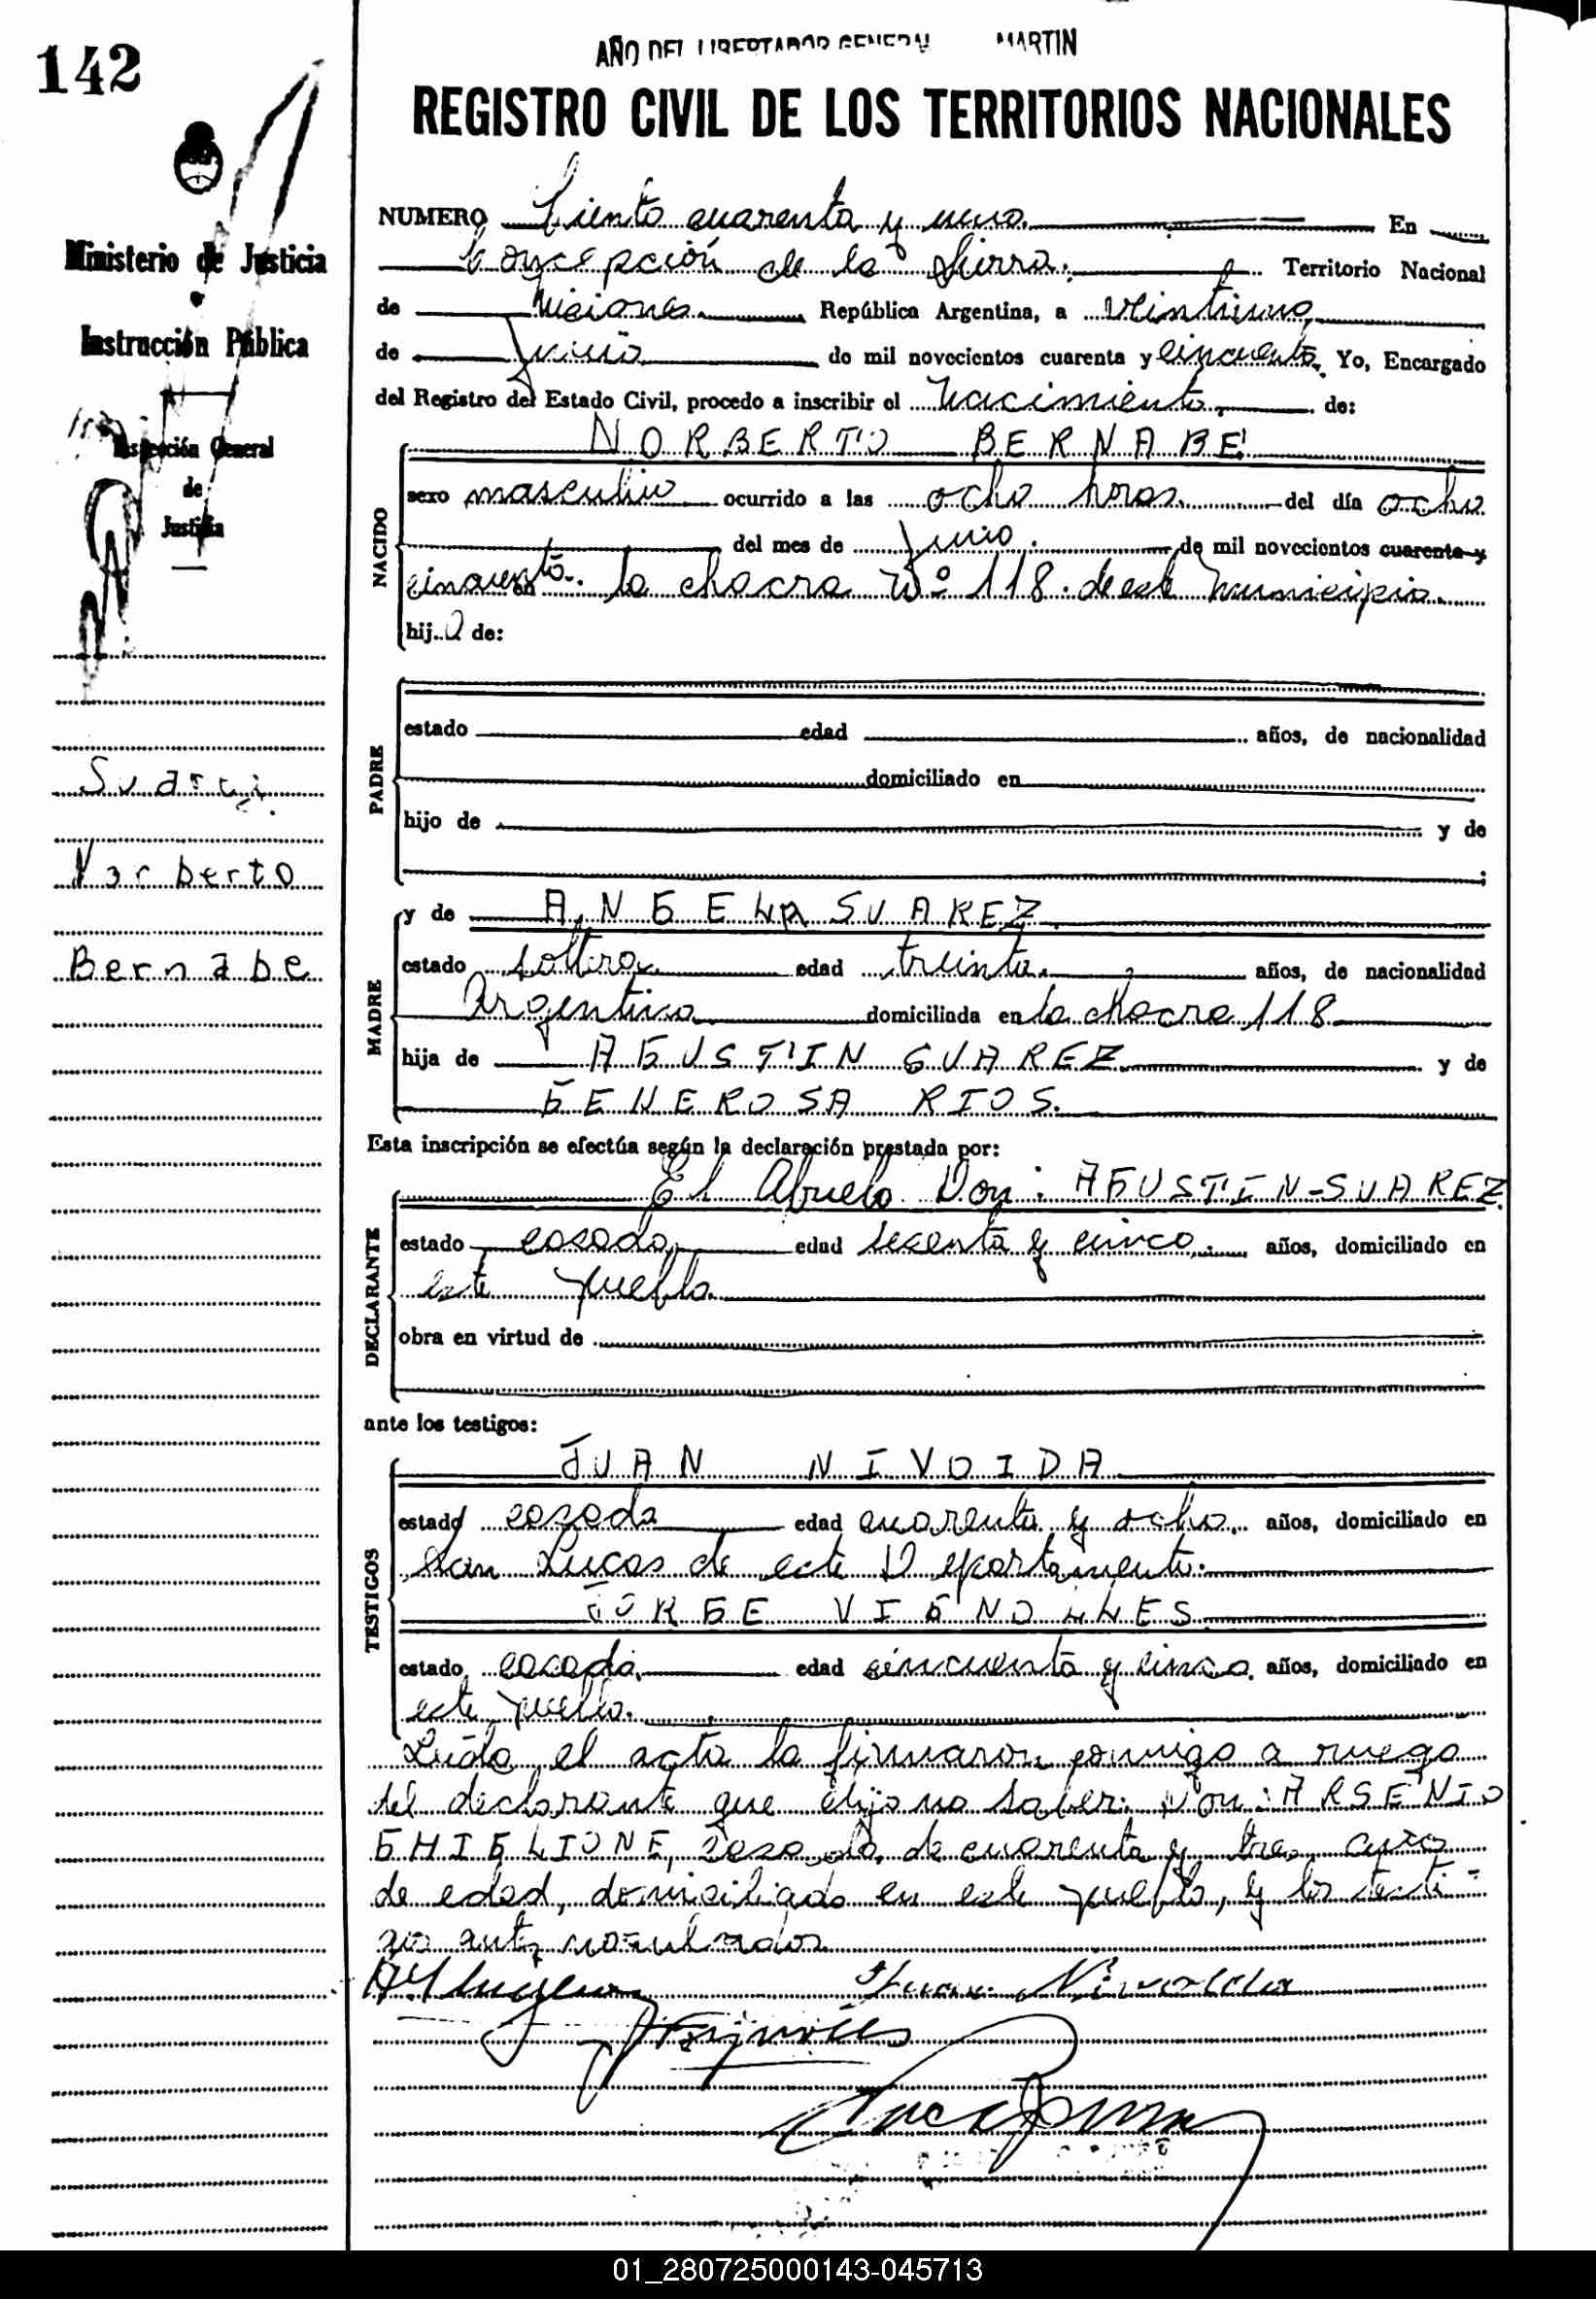 142
AÑO DEL LIBERTADOR GENERAL MARTIN
REGISTRO CIVIL DE LOS TERRITORIOS NACIONALES
Ministerio de Justicia
Instrucción Pública
Inspección General
de
Justicia
Suarez
Norberto
Bernabe
NUMERO Ciento cuarenta y uno. En
Concepción de la Sierra. Territorio Nacional
de Misiones. República Argentina, a veintiuno
de junio de mil novecientos cuarenta y cincuenta. Yo, Encargado
del Registro del Estado Civil, procedo a inscribir el Nacimiento de:
NACIDO
NORBERTO BERNABE
sexo masculino ocurrido a las ocho horas. del día ocho
del mes de junio. de mil novecientos cuarenta y
cincuenta. la chacra Nº 118. de este municipio.
hijo de:
PADRE
estado edad años, de nacionalidad
domiciliado en
hijo de y de
MADRE
y de ANGELA SUAREZ
estado soltera edad treinta. años, de nacionalidad
Argentina domiciliada en la chacra 118
hija de AGUSTIN SUAREZ y de
GENEROSA RIOS.
Esta inscripción se efectúa según la declaración prestada por:
DECLARANTE
El Abuelo Don: AGUSTIN-SUAREZ
estado casado edad secenta y cinco. años, domiciliado en
este pueblo
obra en virtud de
ante los testigos:
TESTIGOS
JUAN NIVOIDA
estado casado edad cuarenta y ocho. años, domiciliado en
San Lucas de este Departamento.
JORGE VIGNOLLES
estado casado. edad cincuenta y cinco. años, domiciliado en
este pueblo.
Leída el acta la firmaron conmigo a ruego
del declarante que dijo no saber: Don: ARSENIO
GHIGLIONE, casado, de cuarenta y tres años
de edad, domiciliado en este pueblo, y los testi-
gos antes nombrados
Juan Nivoida
01_280725000143-045713